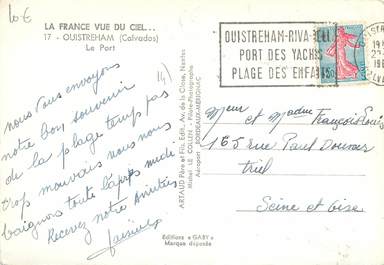 10€
LA FRANCE VUE DU CIEL...
17 - OUISTREHAM (Calvados)
Le Port
OUISTREHAM-RIVA-BELLA
PORT DES YACHTS
PLAGE DES ENFANTS
(14)
nous vous envoyons
notre bon souvenir
de la plage temps pas
trop mauvais nous nous
baignons toute l'après midi
Recevez notre Amitiés
ARTAUD Père et Fils, Édit., Av. de la Close, Nantes
Michel LE COLLEN - Pilote-Photographe
Aéroport BORDEAUX-MÉRIGNAC
Meur et Madme François Louis
165 rue Paul Doumer
Triel
Seine et Oise
Éditions « GABY »
Marque déposée